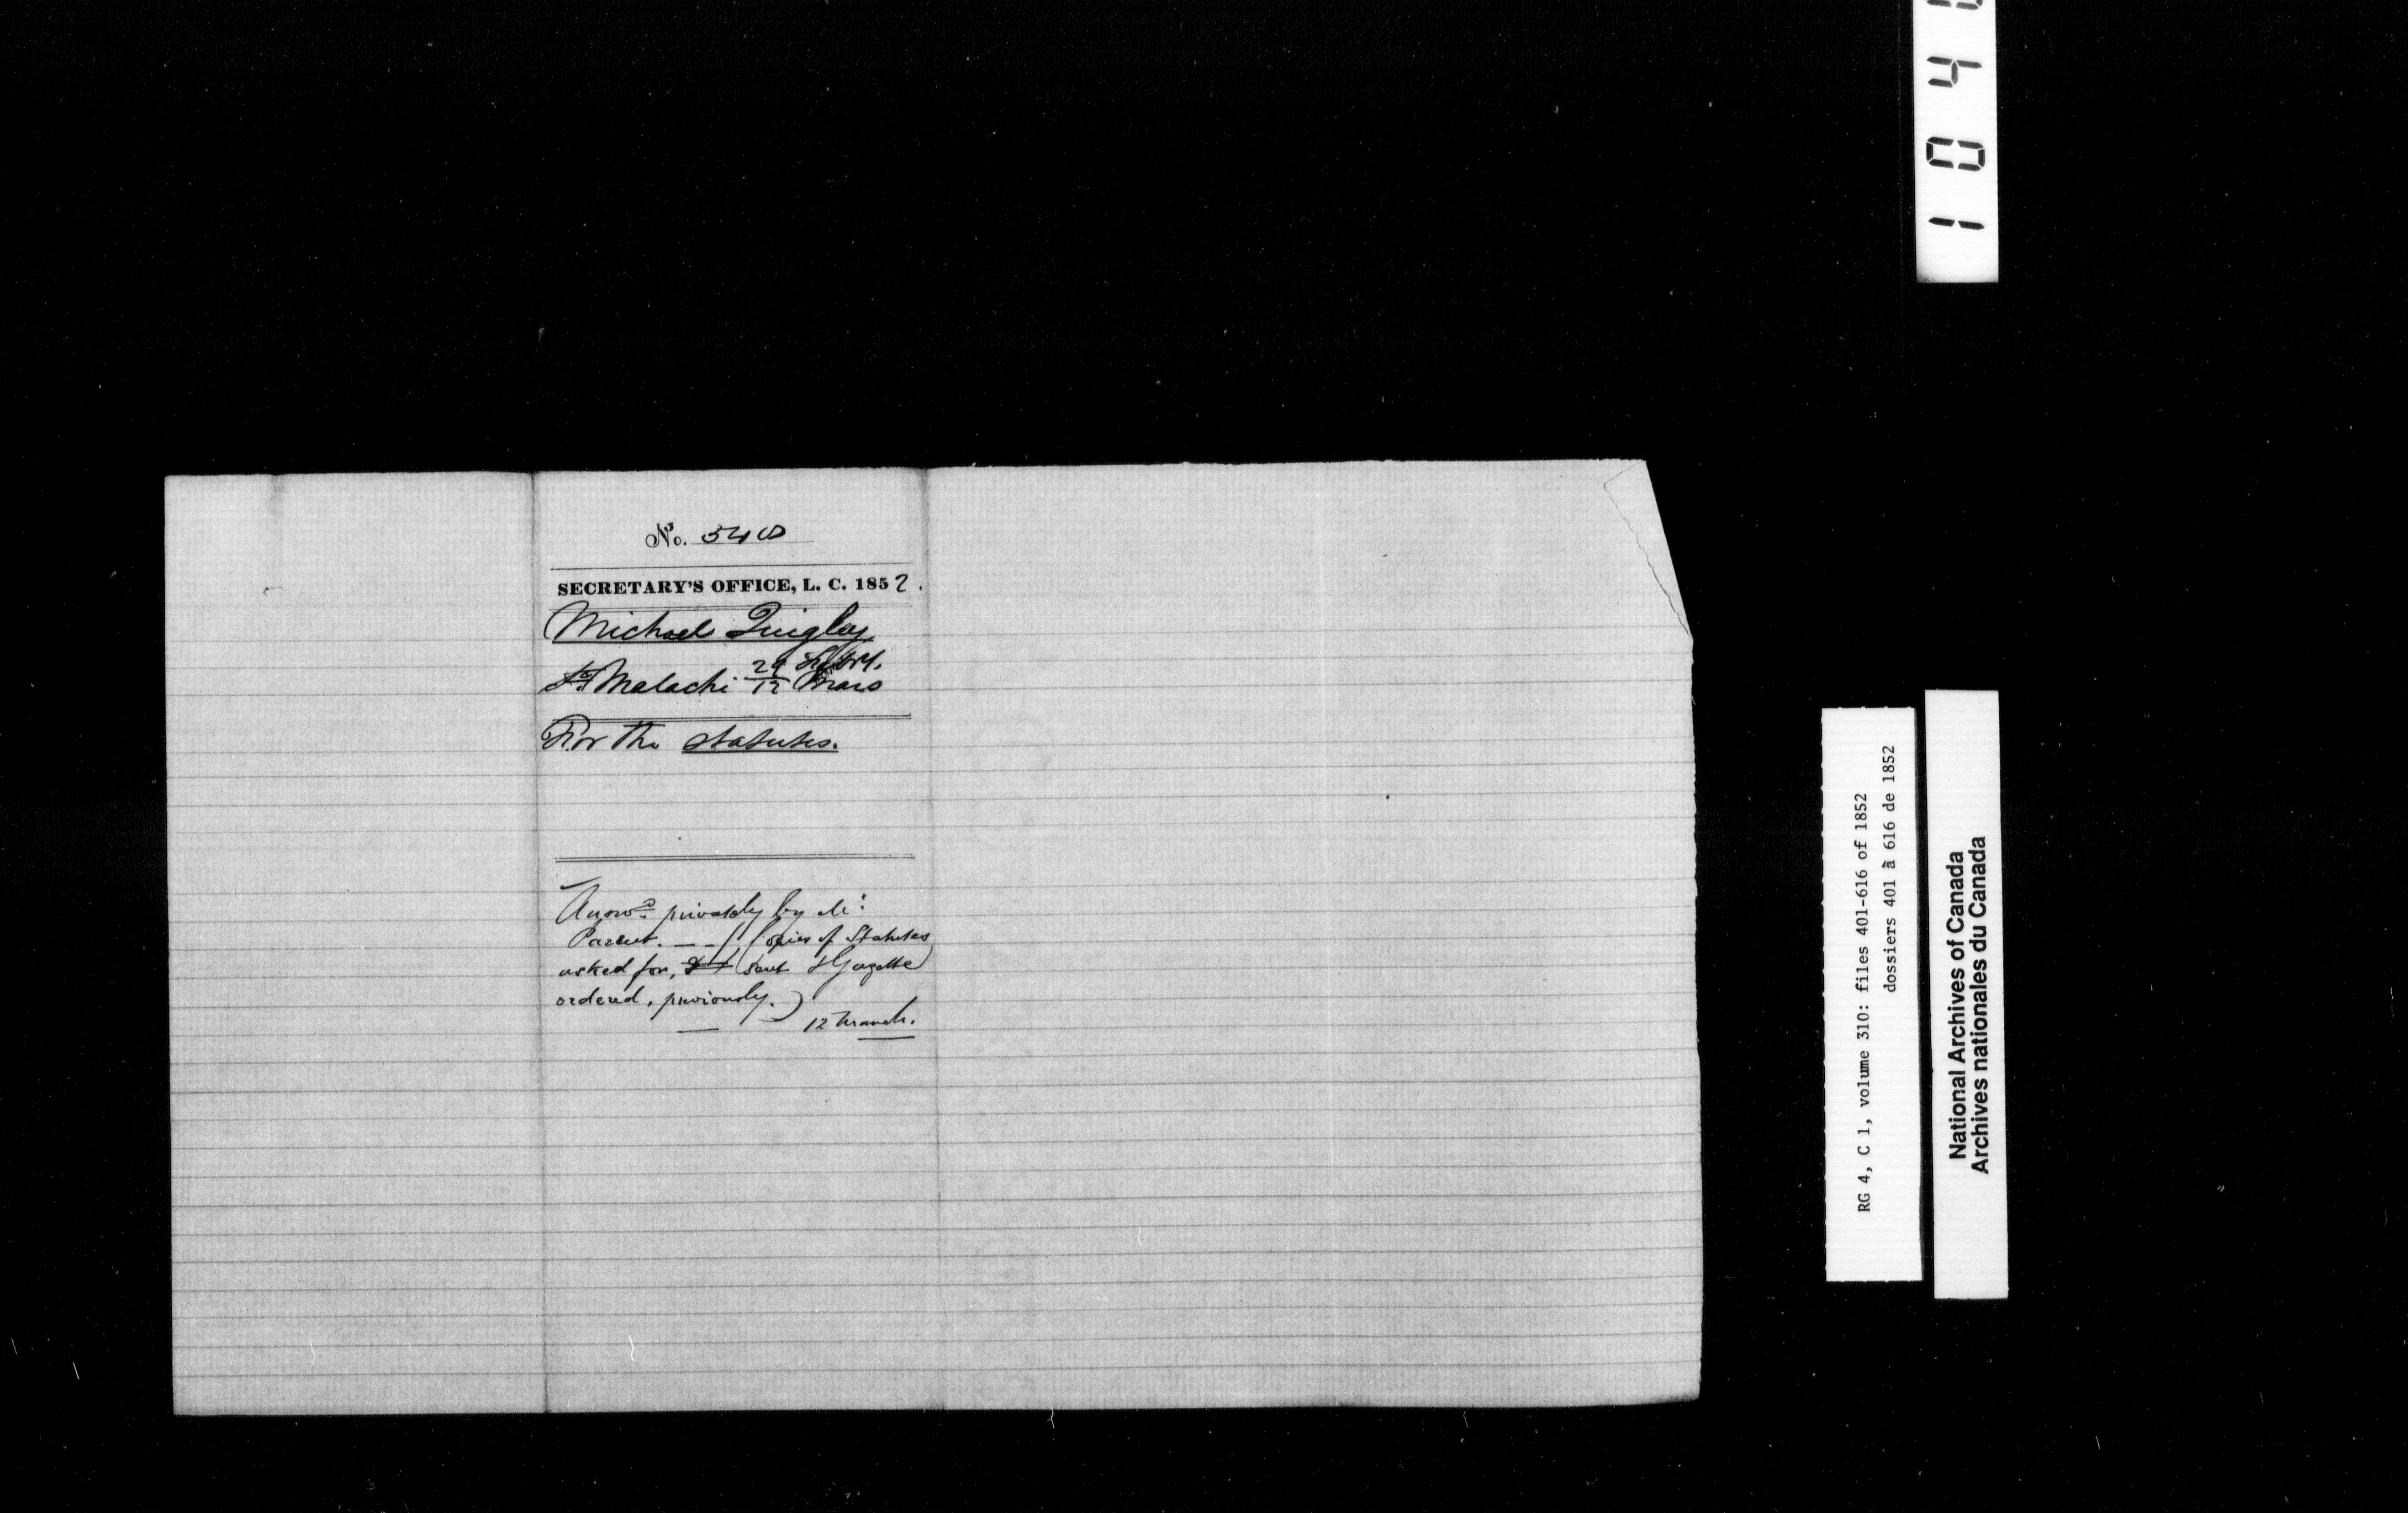 No. 540
SECRETARY'S OFFICE, L. C. 1852.
Michael Quigley
St Malachi 24/12 Mars
For the statutes.
Answd privately by Mr:
Parent. — (Copies of Statutes
asked for, sent & Gazette
ordered, previously.)
12 March.
1 0 4
RG 4, C 1, volume 310: files 401-616 of 1852
dossiers 401 à 616 de 1852
National Archives of Canada
Archives nationales du Canada